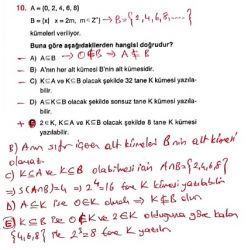 10. A = {0, 2, 4, 6, 8}
B = {x| x = 2m, m∈Z⁺} → B={2,4,6,8,....}
kümeleri veriliyor.
Buna göre aşağıdakilerden hangisi doğrudur?
A) A⊆B → 0∉B ⇒ A⊈B
B) A'nın her alt kümesi B'nin alt kümesidir.
C) K⊆A ve K⊆B olacak şekilde 32 tane K kümesi yazılabilir.
D) A⊆K ve K⊆B olacak şekilde sonsuz tane K kümesi yazılabilir.
E) 2∈K, K⊆A ve K⊆B olacak şekilde 8 tane K kümesi yazılabilir.
B) A'nın sıfır içeren alt kümeleri B'nin alt kümesi
olamaz.
C) K⊆A ve K⊆B olabilmesi için A∩B={2,4,6,8}
⇒ s(A∩B)=4 ⇒ 2⁴=16 tane K kümesi yazılabilir
D) A⊆K ise 0∈K olmalı ⇒ K⊈B olur.
E) K⊆B ise 0∉K ve 2∈K olduğuna göre kalan
{4,6,8} ile 2³=8 tane K yazılır.